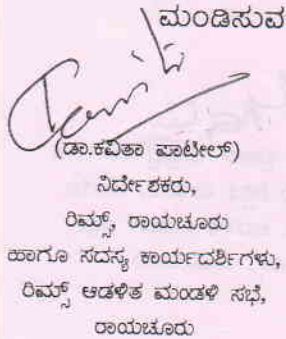 ಮಂಡಿಸುವ
(ಡಾ.ಕವಿತಾ ಪಾಟೀಲ್)
ನಿರ್ದೇಶಕರು,
ರಿಮ್ಸ್, ರಾಯಚೂರು
ಹಾಗೂ ಸದಸ್ಯ ಕಾರ್ಯದರ್ಶಿಗಳು,
ರಿಮ್ಸ್ ಆಡಳಿತ ಮಂಡಳಿ ಸಭೆ,
ರಾಯಚೂರು